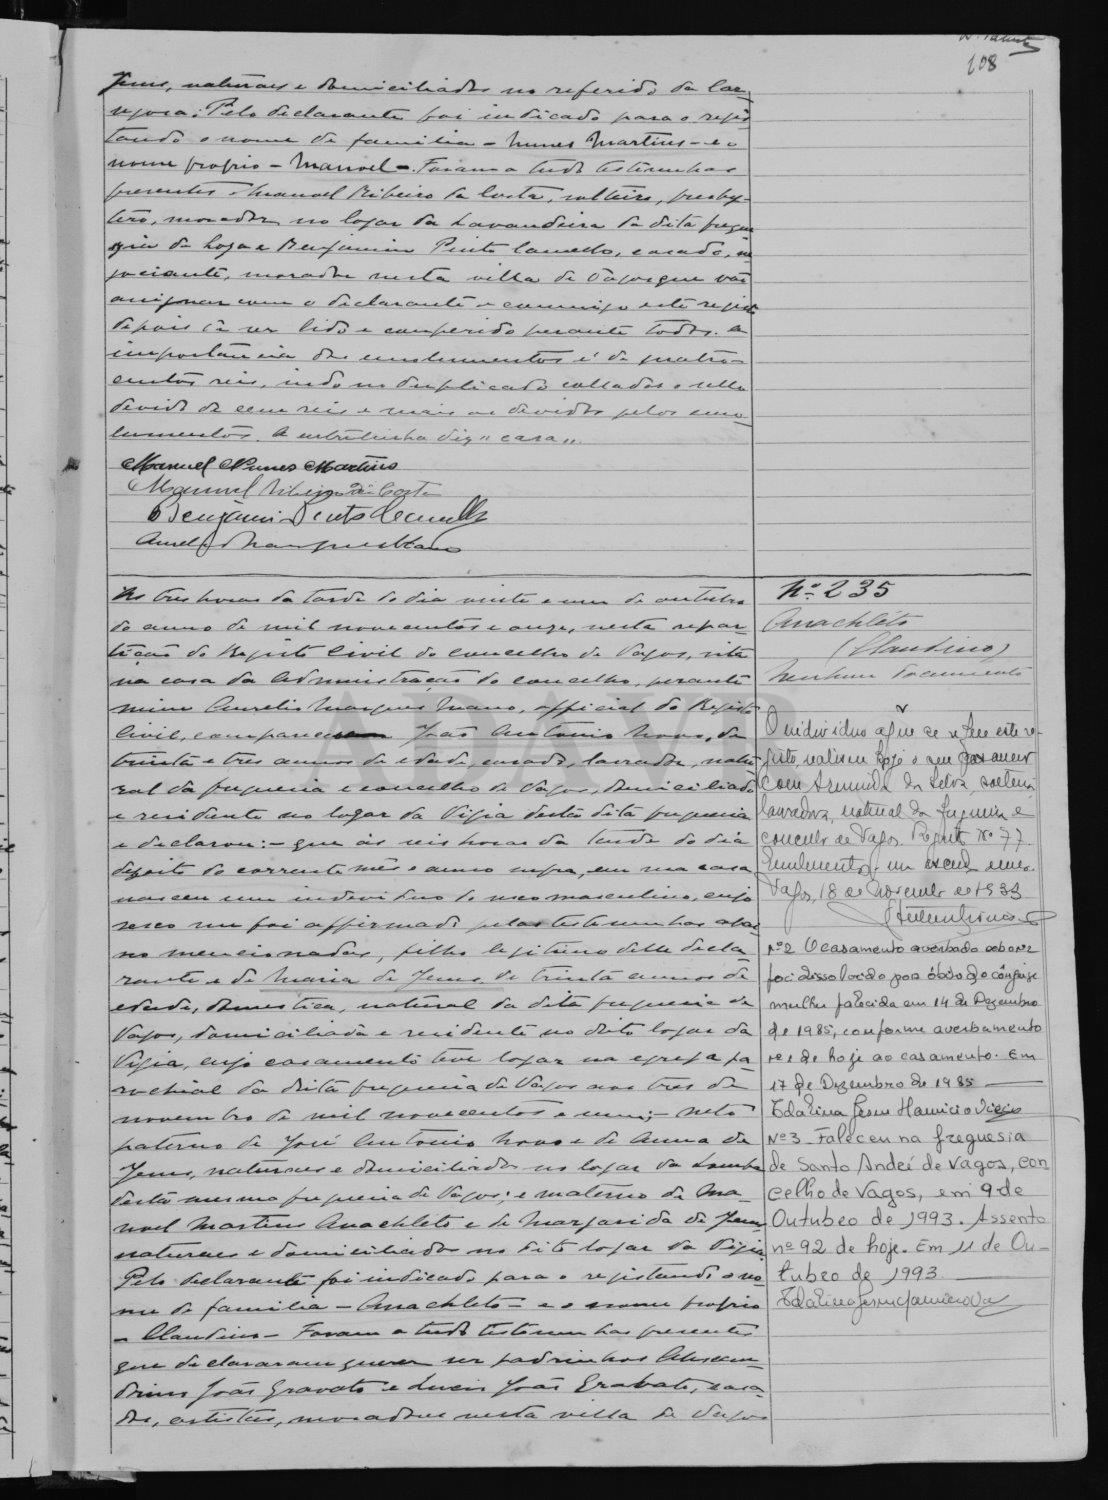 108
Jesus, naturaes e domiciliados no referido da Lar
negosa; Pelo declarante foi indicado para o regis
tando o nome de familia – Nunes Martins – e o
nome proprio – Manoel –. Foram a tudo testemunhas
presentes Manoel Ribeiro da Costa, solteiro, presby-
tero, morador no logar da Lavandeira da dita fregue
sia de Soza e Benjamim Pinto Camello, casado, ne
gociante, morador nesta villa de Vagos que vão
assignar com o declarante e commigo este registo
depois de ser lido e conferido perante todos. A
importancia dos emolumentos é de quatro-
centos reis, indo no duplicado collados o sello
devido de cem reis e mais os devidos pelos emo-
lumentos. A entrelinha diz "casa".
Manuel Nunes Martins
Manuel Ribeiro da Costa
Benjamim Pinto Camello
Aurelio Marques Mano
As tres horas da tarde do dia vinte e um de outubro
do anno de mil novecentos e onze, nesta repar-
tição do Registo Civil do concelho de Vagos, sita
na casa da Administração do concelho, perante
mim Aurelio Marques Mano, official do Registo
Civil, compareceu João Antonio Novo, de
trinta e tres annos de edade, casado, lavrador, natu
ral da freguesia e concelho de Vagos, domiciliado
e residente no logar da Vigia desta dita freguesia
e declarou: – que ás seis horas da tarde do dia
dezoito do corrente mês e anno supra, em sua casa
nasceu um individuo do sexo masculino, cujo
sexo me foi affirmado pelas testemunhas abai
xo mencionadas, filho legitimo delle decla
rante e de Maria de Jesus, de trinta annos de
edade, domestica, natural da dita freguesia de
Vagos, domiciliada e residente no dito logar da
Vigia, cujo casamento teve logar na egreja pa
rochial da dita freguesia de Vagos aos tres de
novembro de mil novecentos e um; – neto
paterno de José Antonio Novo e de Anna de
Jesus, naturaes e domiciliados no logar da Lomba
desta mesma freguesia de Vagos; e materno de Ma-
noel Martins Anachleto e de Margarida de Jesus
naturaes e domiciliados no dito logar da Vigia.
Pelo declarante foi indicado para o registando o no
me de familia – Anachleto – e o nome proprio
– Claudino – Foram a tudo testemunhas presentes
que declararam querer ser padrinhos Alexan-
drino João Gravato e Luciz João Grabato, casa-
dos, artistas, moradores nesta villa de Vagos
Nº 235
Anachleto
(Claudino)
Nenhum documento
O individuo a que se refere este re-
gisto, realisou hoje o seu casamento
com Arminda da Silva, solteira
lavradora, natural da freguesia e
concelho de Vagos. Registo Nº 77.
Emolumentos: um escudo
Vagos, 18 de Novembro de 1933
Nº2 O casamento averbado sob o nº1
foi dissolvido por óbito do cônjuge
mulher falecida em 14 de Dezembro
de 1985, conforme averbamento
nº1 de hoje ao casamento. Em
17 de Dezembro de 1985
Edalina Jesus Maurício Vieira
Nº3 – Faleceu na freguesia
de Santo André de Vagos, con
celho de Vagos, em 9 de
Outubro de 1993. Assento
nº 92 de hoje. Em 11 de Ou-
tubro de 1993
ADAVR